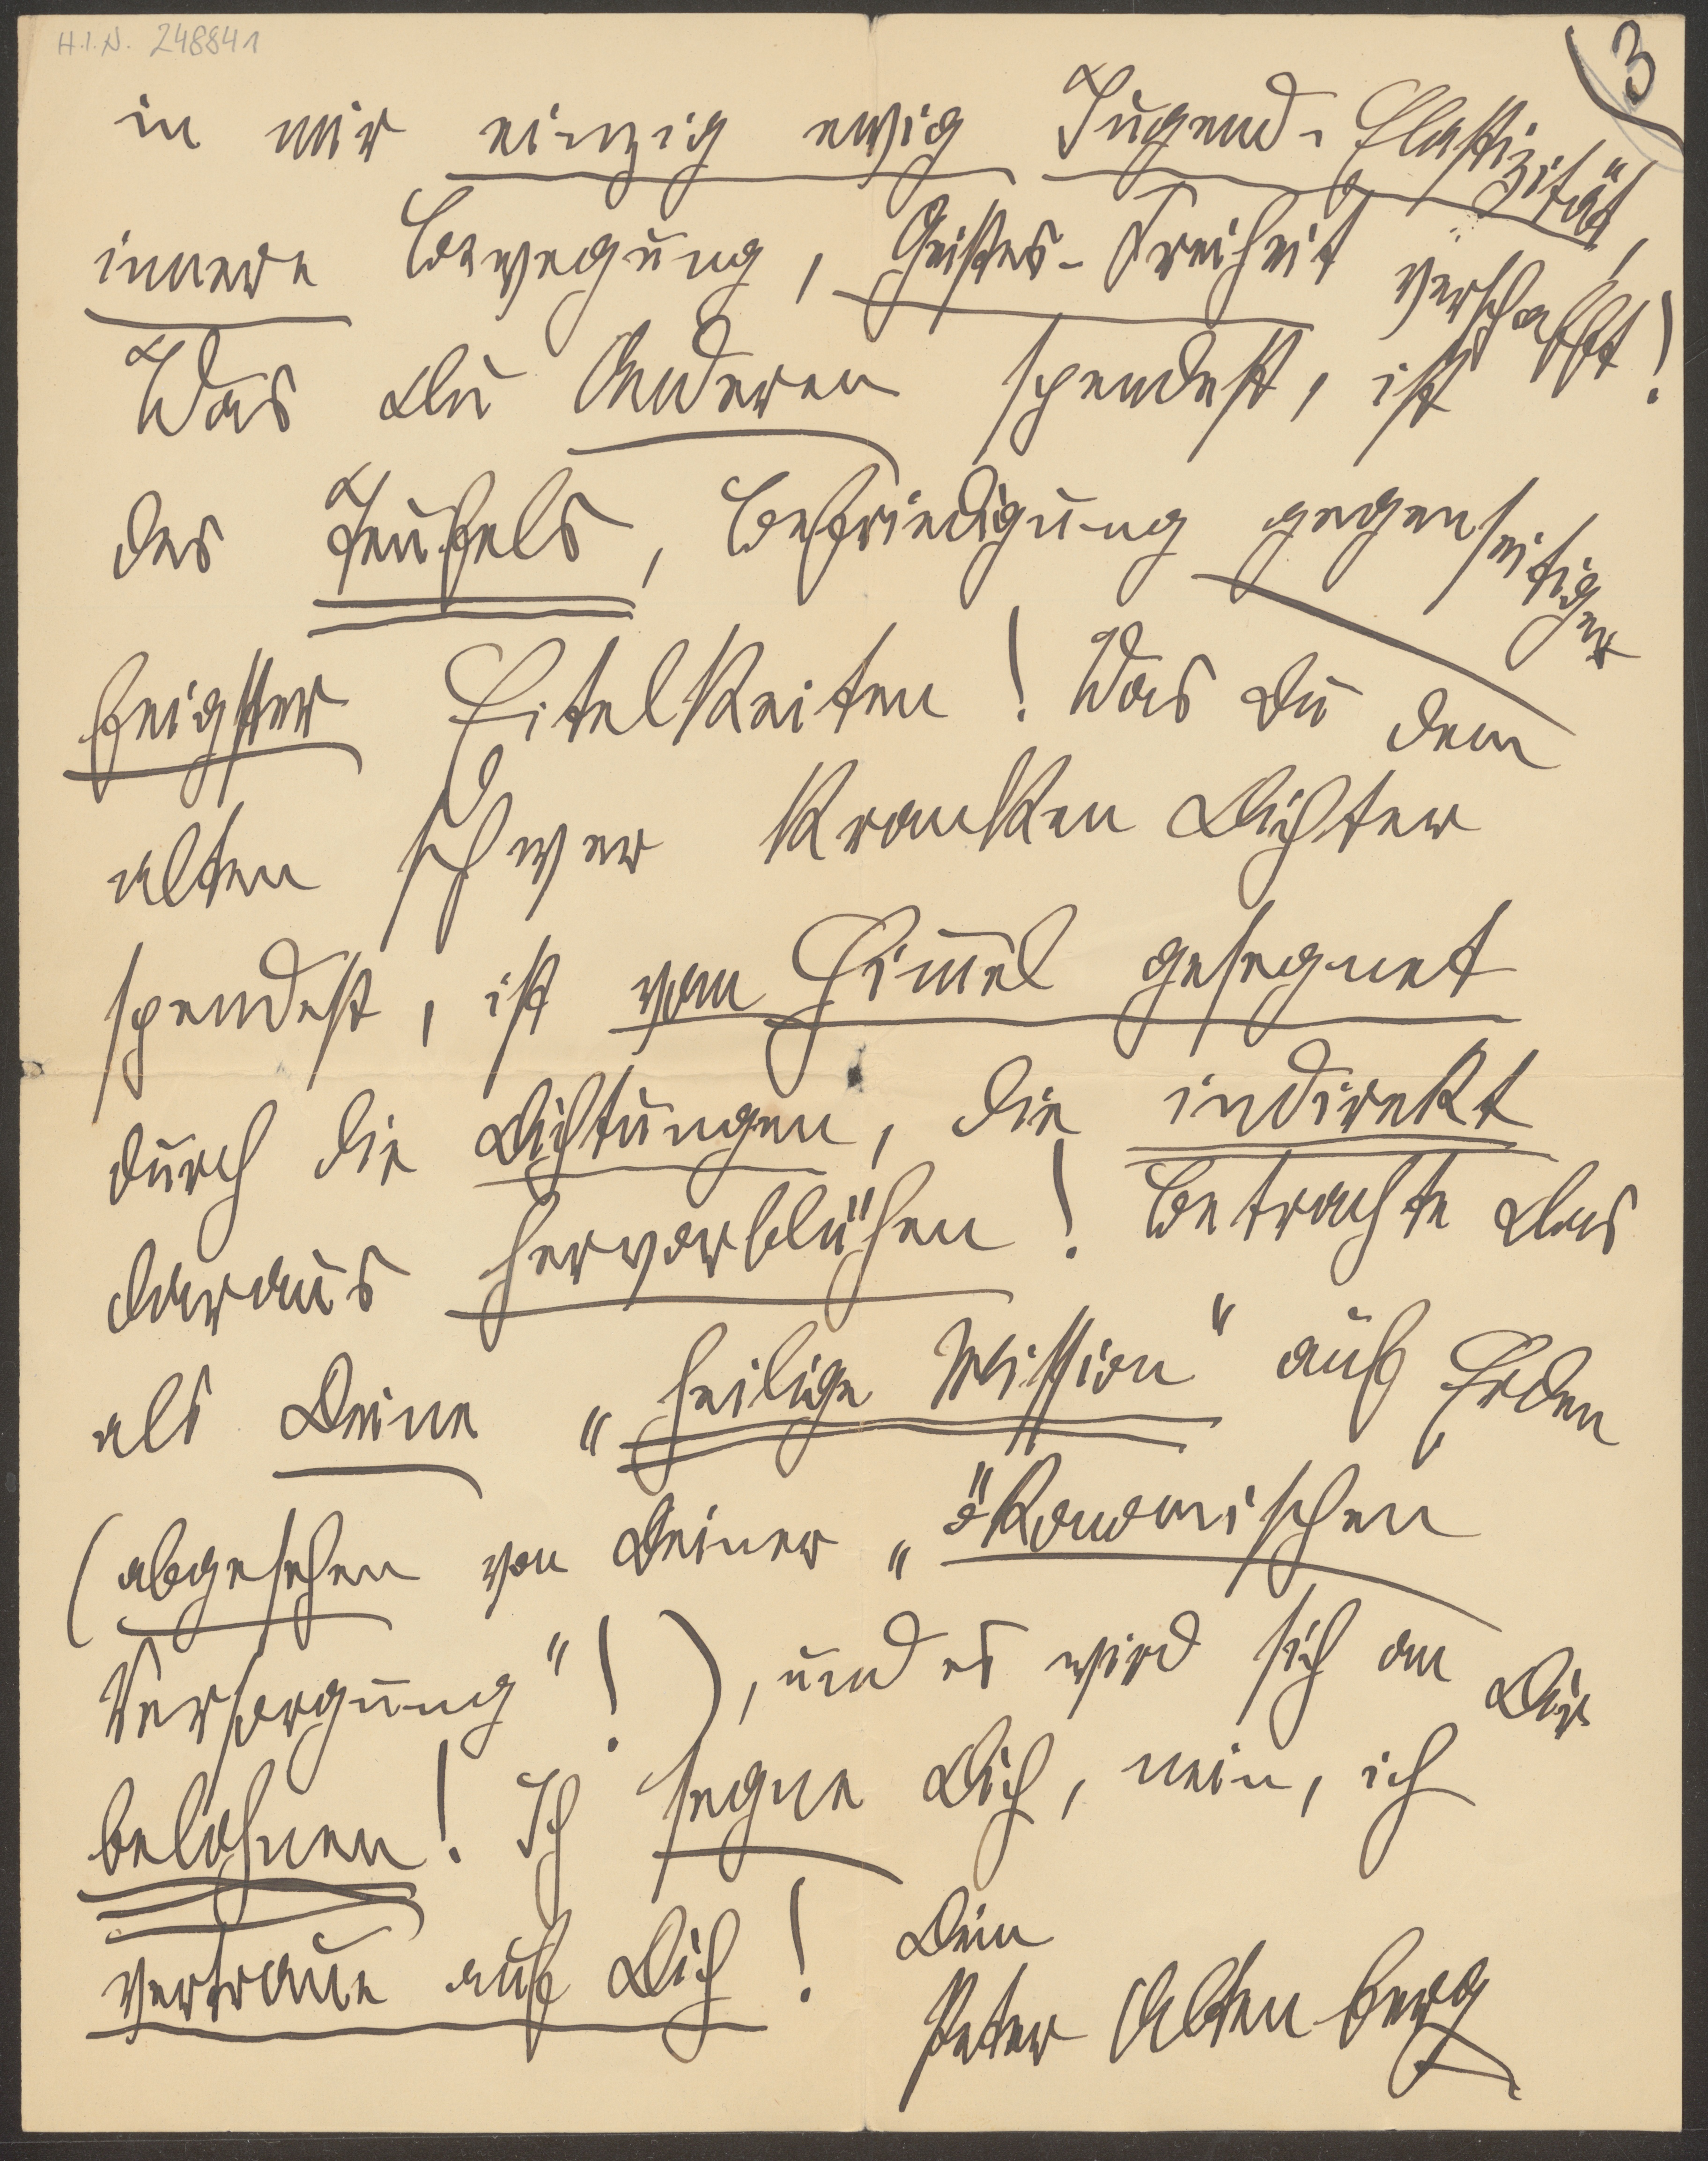 H.I.N. 248841
3
in mir einzig ewig Jugend-Elastizität,
innere Bewegung, Geistes-Freiheit verschafft!
Was Du Anderen spendest, ist
des Teufels, Befriedigung gegenseitiger
feigster Eitelkeiten! Was Du dem
alten schwer kranken Dichter
spendest, ist vom Him̅el gesegnet
durch die Dichtungen, die indirekt
daraus hervorblühen! Betrachte Das
als Deine „heilige Mission" auf Erden
(abgesehen von Deiner „ökonomischen
Versorgung"!), und es wird sich an Dir
belohnen! Ich segne Dich, nein, ich
vertraue auf Dich! Dein
Peter Altenberg